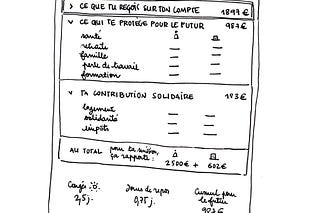 > CE QUE TU REÇOIS SUR TON COMPTE 1899 €
v CE QUI TE PROTÈGE POUR LE FUTUR 987 €
santé
retraite
famille
perte de travail
formation
v TA CONTRIBUTION SOLIDAIRE
logement
solidarité
impôts
AU TOTAL pour ta mission, ça rapporte : 2500 € + 602 €
Congés Jours de repos Cumul pour le futur
2,5 j. 0,75 j.